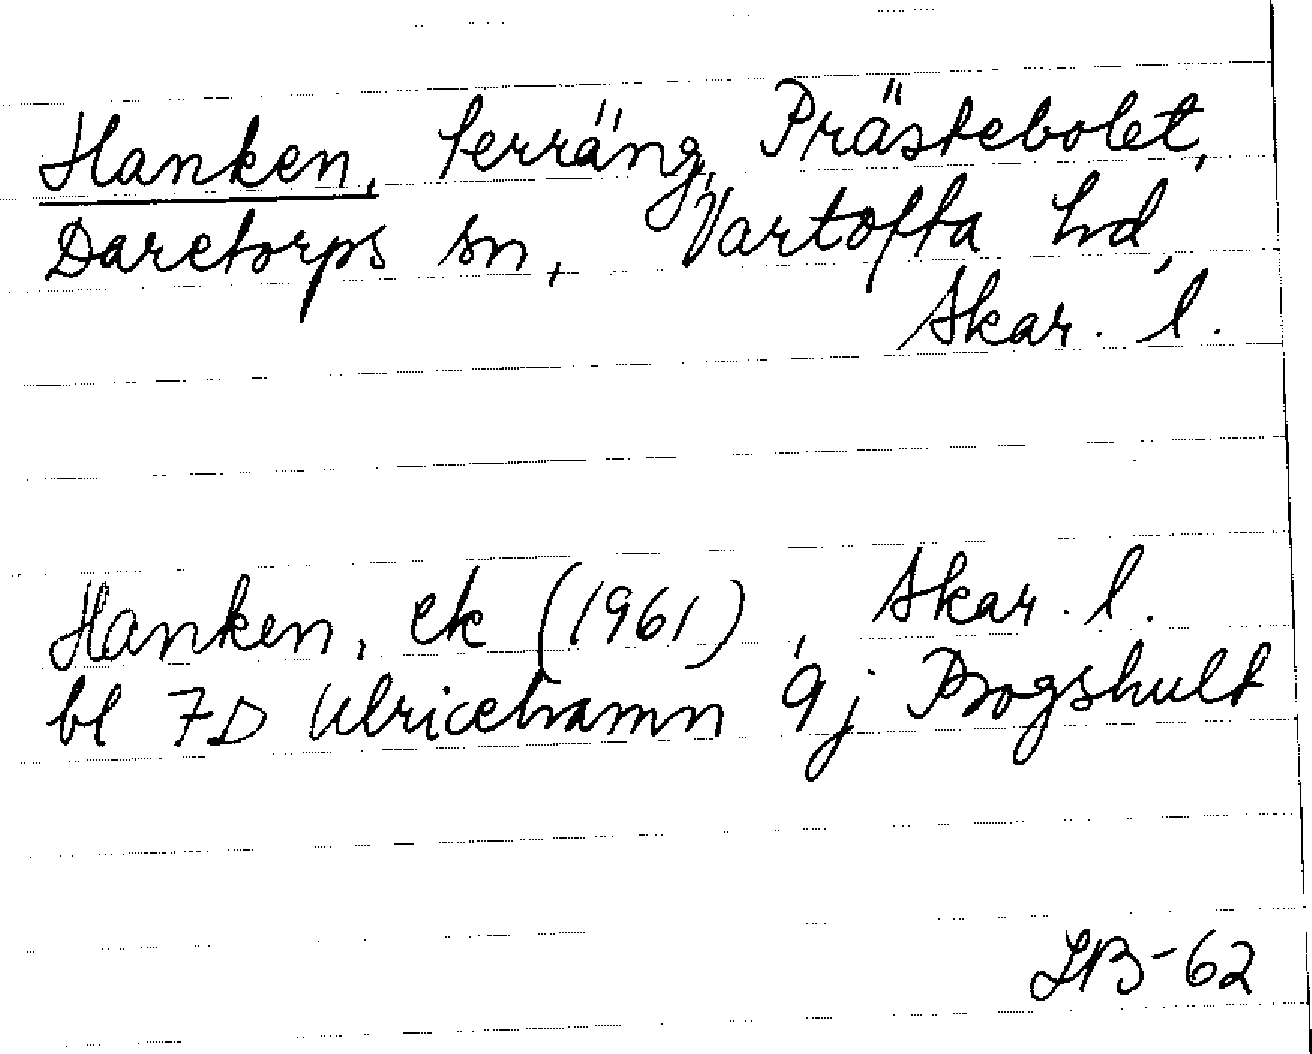 Hanken, terräng, Prästebolet,
Daretorps sn, Vartofta hd,
Skar. l.
Hanken, ek (1961), Skar. l.
bl 7D Ulricehamn 9j Brogshult
LB-62